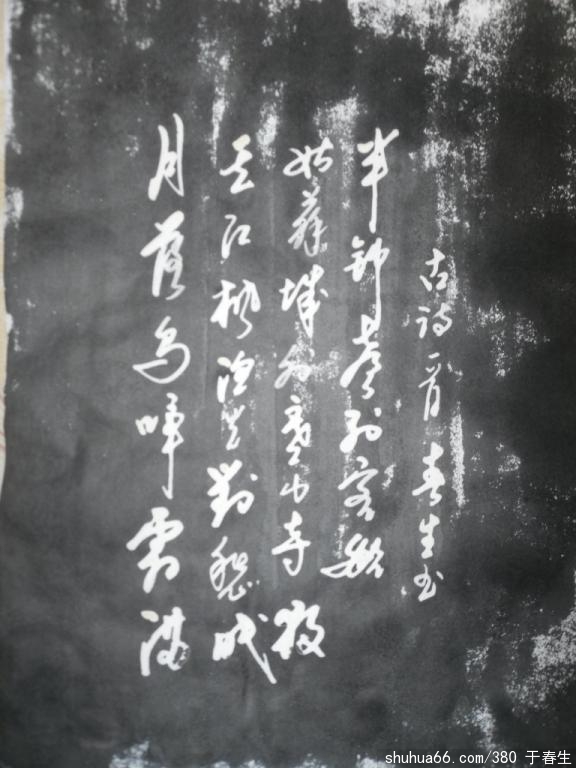 月落乌啼霜满
天江枫渔火對愁眠
姑蘇城外寒山寺夜
半钟聲到客船
古诗一首 春生书
shuhua66.com/380 于春生